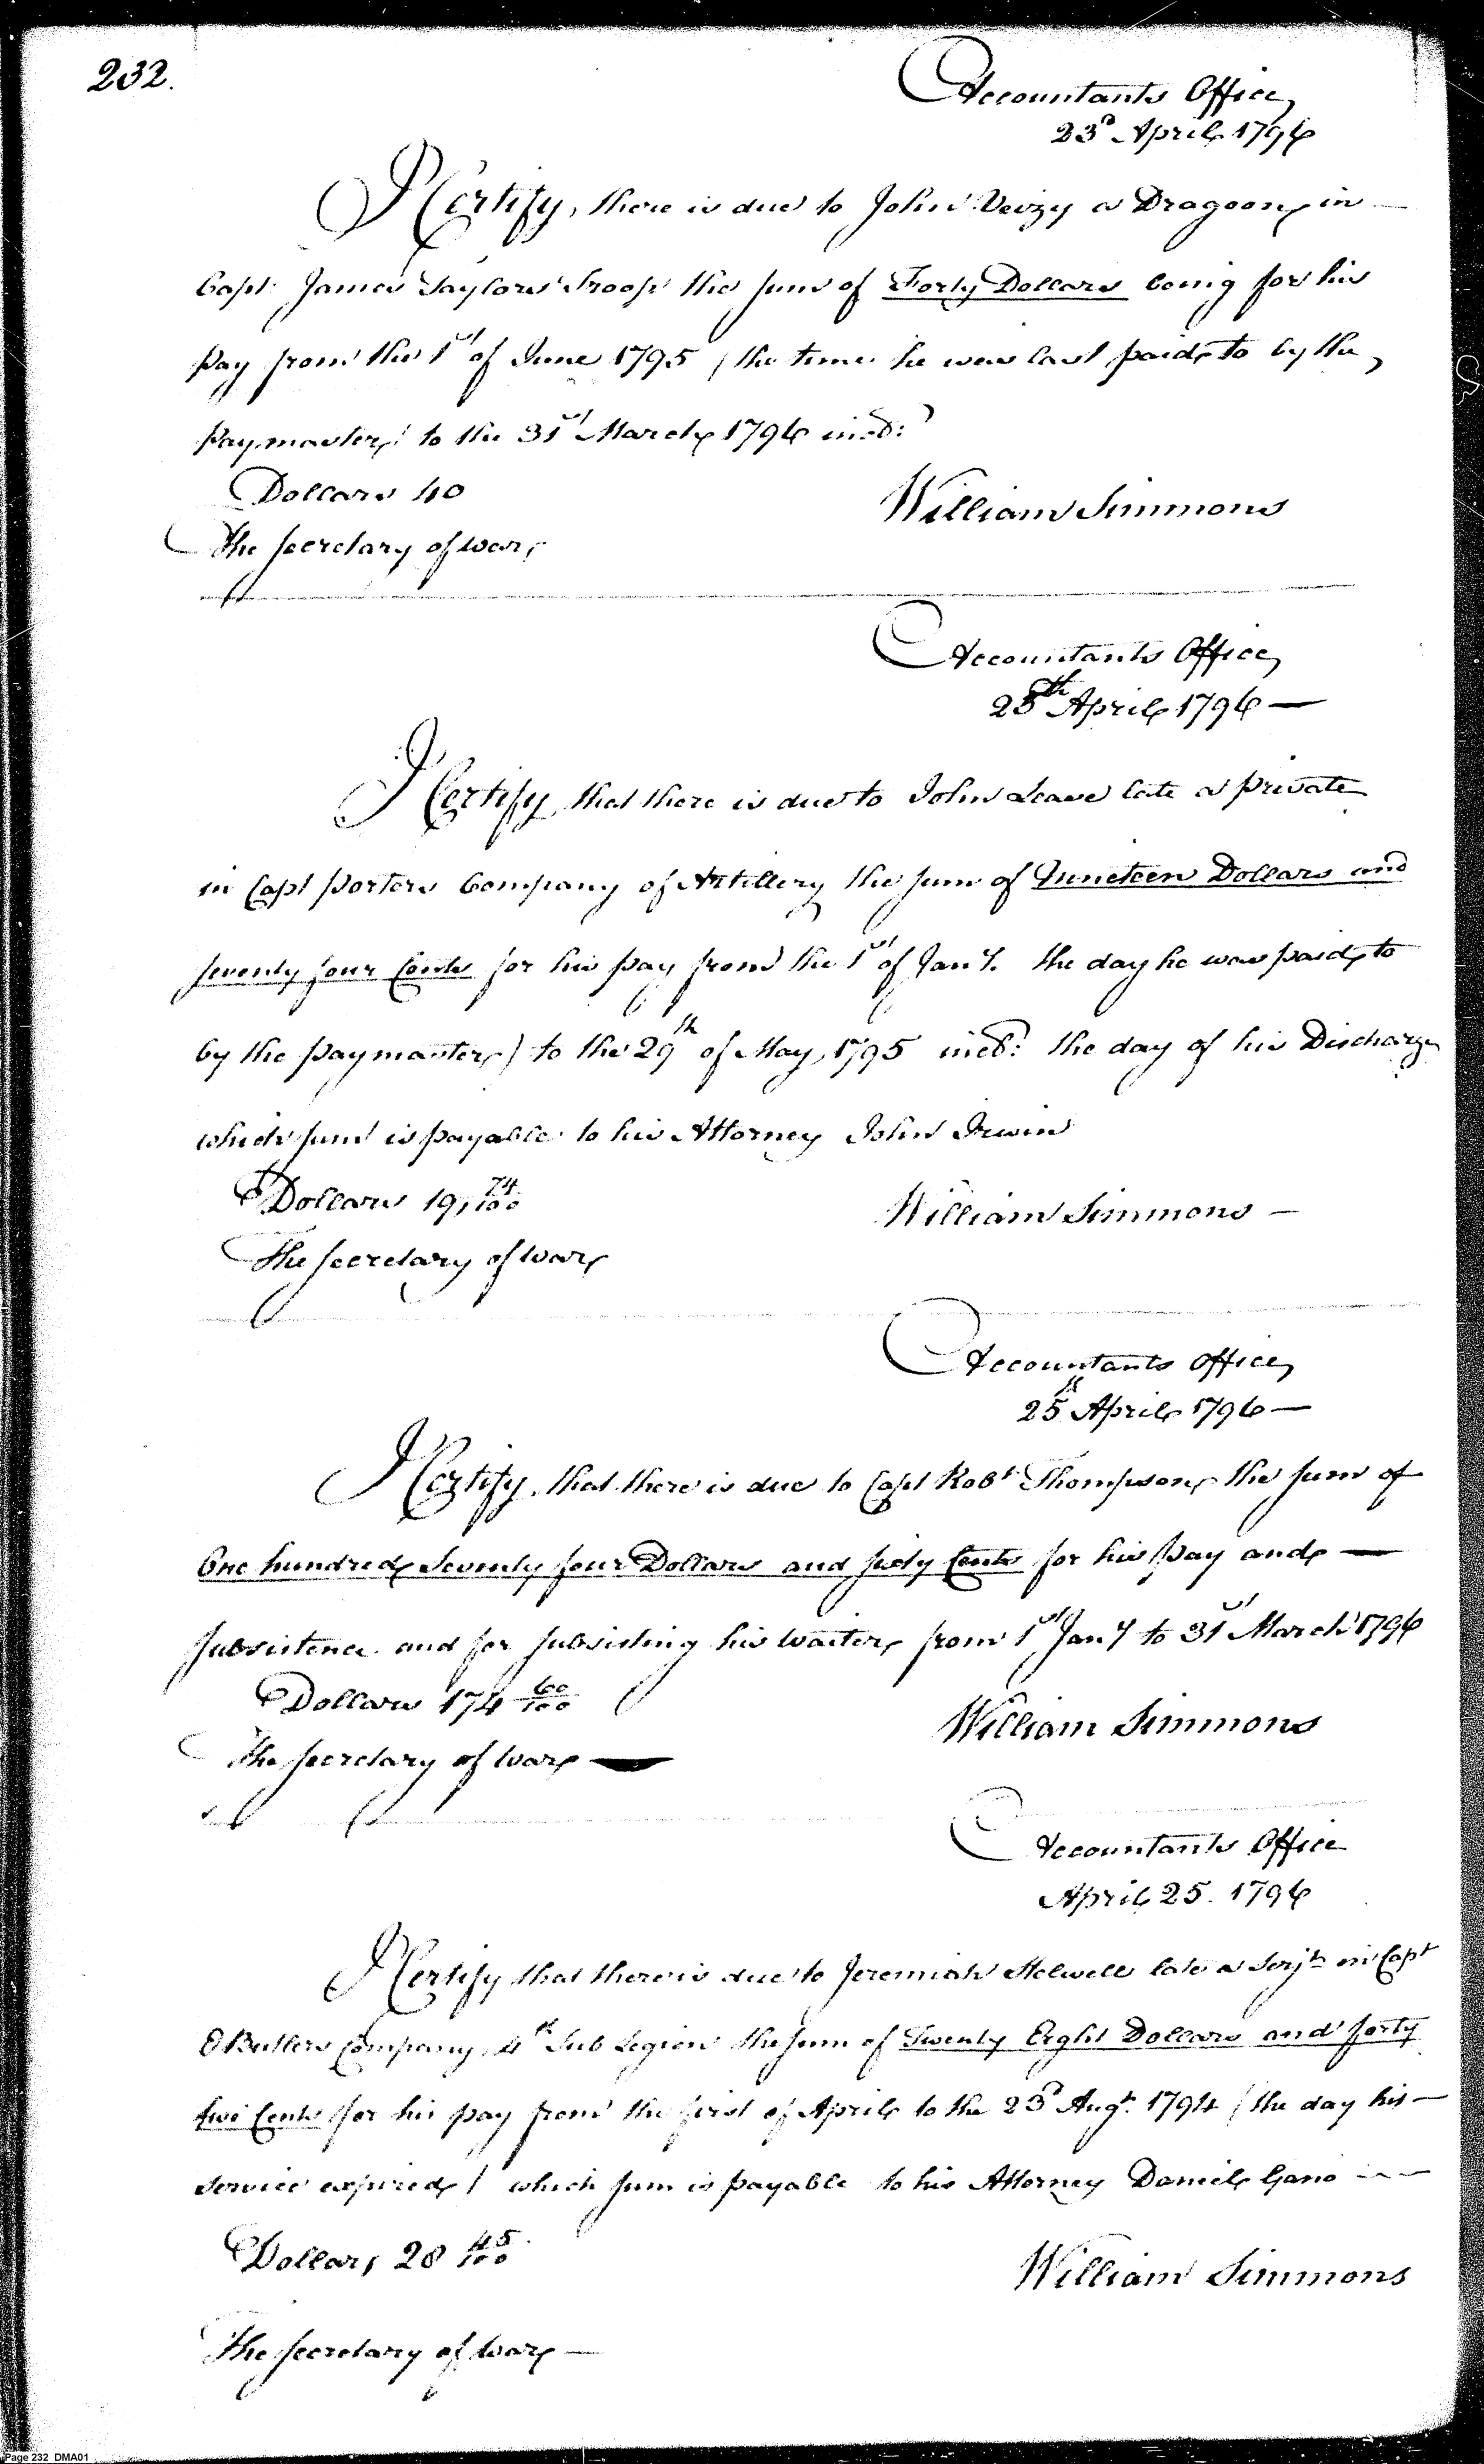 232.
Accountants Office,
23d April 1796
I Certify, there is due to John Veizy a Dragoon in
Capt. James Taylors Troop the sum of Forty Dollars being for his
pay from the 1st of June 1795 / the time he was last paid to by the
paymaster / to the 31st March 1796 incd:
Dollars 40
William Simmons
The Secretary of War
Accountants Office,
25th April 1796 —
I Certify, that there is due to John Leave late a private
in Capt Porters Company of Artillery the sum of Nineteen Dollars and
seventy four Cents for his pay from the 1st of Jany. the day he was paid to
by the paymaster) to the 29th of May, 1795 incd: the day of his Discharge
which sum is payable to his Attorney John Irwin
Dollars 19, 74/100
William Simmons —
The Secretary of War
Accountants Office,
25th April 1796 —
I Certify, that there is due to Capt Robt Thompson, the sum of
One hundred Seventy four Dollars and sixty Cents for his pay and —
subsistence and for subsisting his Waiter, from 1st Jany to 31st March 1796
Dollars 174 60/100
William Simmons
The Secretary of War —
Accountants Office
April 25. 1796
I Certify that there is due to Jeremiah Holwell late a Serjt in Capt
E Butlers Company, 4th Sub Legion the sum of Twenty Eight Dollars and forty
five Cents for his pay from the first of April to the 23d Augt. 1794 / the day his —
service expired / which sum is payable to his Attorney Daniel Gano —
Dollars 28 45/100
William Simmons
The Secretary of War —
Page 232 DMA01